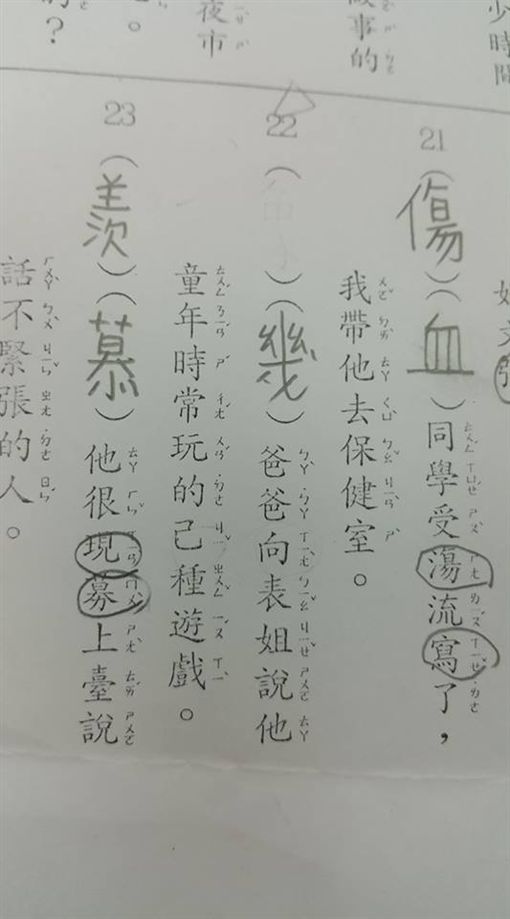 少時間
事的
夜市
。
？
21（傷）（血）同學受湯流寫了，
我帶他去保健室。
22（ ）（幾）爸爸向表姐說他
童年時常玩的己種遊戲。
23（羨）（慕）他很現募上臺說
話不緊張的人。